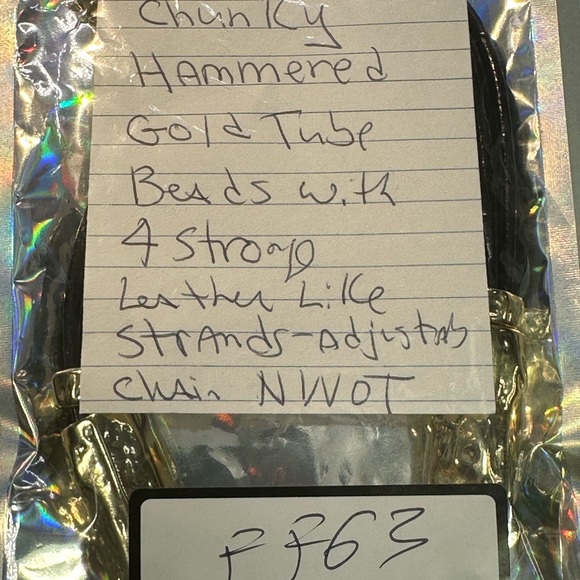 Chunky
Hammered
Gold Tube
Beads with
4 Strong
Leather Like
Strands-Adjustab
Chain NWOT
FF63